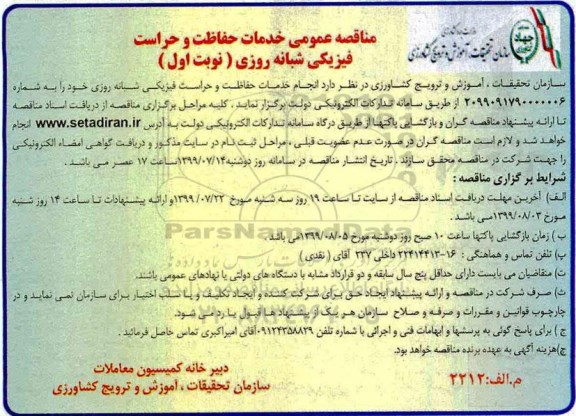 سازمان تحقیقات، آموزش و ترویج کشاورزی
مناقصه عمومی خدمات حفاظت و حراست
فیزیکی شبانه روزی ( نوبت اول )
سازمان تحقیقات ، آموزش و ترویج کشاورزی در نظر دارد انجام خدمات حفاظت و حراست فیزیکی شبانه روزی خود را به شماره
۲۰۹۹۰۹۱۷۹۰۰۰۰۰۶ از طریق سامانه تدارکات الکترونیکی دولت برگزار نماید . کلیه مراحل برگزاری مناقصه از دریافت اسناد مناقصه
تا ارائه پیشنهاد مناقصه گران و بازگشایی پاکتها از طریق درگاه سامانه تدارکات الکترونیکی دولت به آدرس www.setadiran.ir انجام
خواهد شد و لازم است مناقصه گران در صورت عدم عضویت قبلی ، مراحل ثبت نام در سایت مذکور و دریافت گواهی امضاء الکترونیکی
را جهت شرکت در مناقصه محقق سازند . تاریخ انتشار مناقصه در سامانه روز دوشنبه ۱۳۹۹/۰۷/۱۴ ساعت ۱۷ عصر می باشد .
شرایط بر گزاری مناقصه :
الف) آخرین مهلت دریافت اسناد مناقصه از سایت تا ساعت ۱۹ روز سه شنبه مورخ ۱۳۹۹/۰۷/۲۲ و ارائه پیشنهادات تا ساعت ۱۴ روز شنبه
مورخ ۱۳۹۹/۰۸/۰۳ می باشد .
ب ) زمان بازگشایی پاکتها ساعت ۱۰ صبح روز دوشنبه مورخ ۱۳۹۹/۰۸/۰۵ می باشد .
پ) تلفن تماس و هماهنگی : ۱۶-۲۲۴۱۴۴۱۳ داخلی ۲۳۷ آقای ( نقدی )
ت) متقاضیان می بایست دارای حداقل پنج سال سابقه و دو قرارداد مشابه با دستگاه های دولتی یا نهادهای عمومی باشند.
ث) صرف شرکت در مناقصه و ارائه پیشنهاد ایجاد حق برای شرکت کننده و ایجاد تکلیف و یا سلب اختیار برای سازمان نمی نماید و در
چارچوب قوانین و مقررات و صرفه و صلاح سازمان هر یک از پیشنهاد ها قبول یا رد می شود.
ج ) برای پاسخ گوئی به پرسشها و ابهامات فنی و اجرائی با شماره تلفن ۰۹۱۲۴۳۵۸۸۲۹ آقای امیراکبری تماس حاصل فرمائید .
چ) هزینه آگهی به عهده برنده مناقصه خواهد بود.
دبیر خانه کمیسیون معاملات
سازمان تحقیقات ، آموزش و ترویج کشاورزی
م.الف: ۲۲۱۲
ParsNamadData